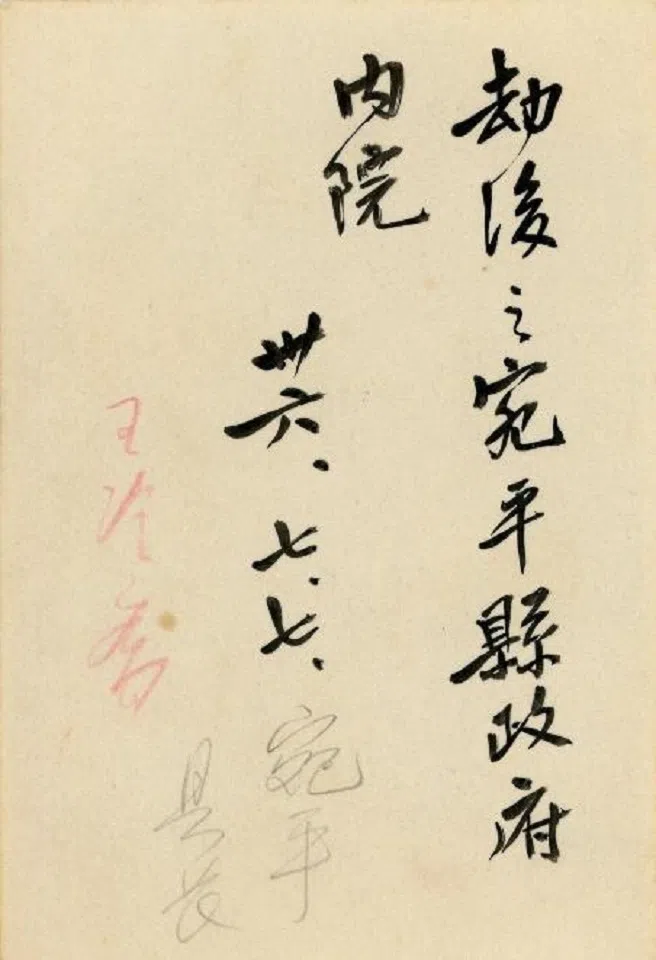 劫後之宛平縣政府
内院
卅六、七、七、
宛平
县长
王冷斋